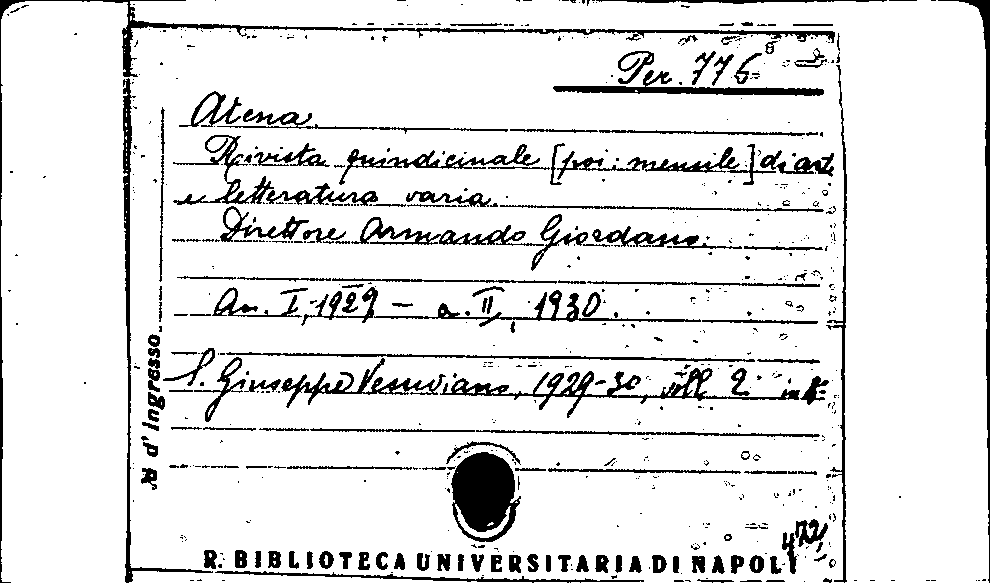 Per. 776
Atena.
Rivista quindicinale [poi: mensile] di art.
e letteratura varia.
Direttore Armando Giordano.
An. I, 1929 – a. II, 1930.
S. Giuseppe Vesuviano, 1929-30, voll. 2 in 4°
N d' Ingresso
472
R. BIBLIOTECA UNIVERSITARIA DI NAPOLI